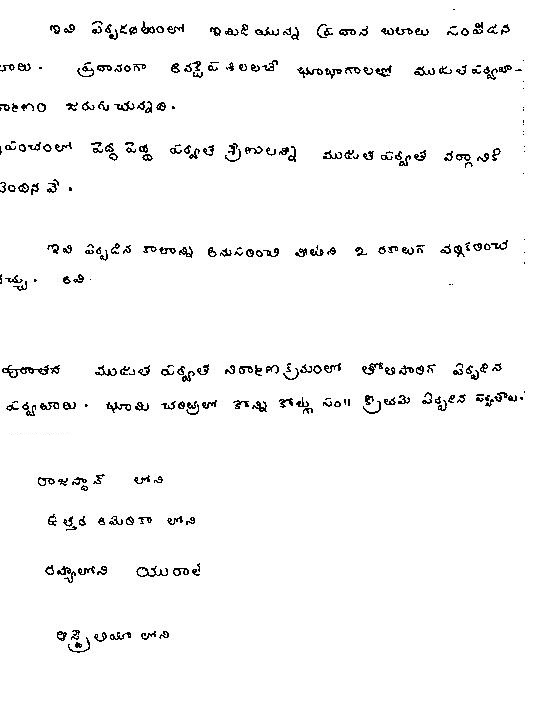 ఇవి ఏర్పడటంలో ఇమిడియున్న ప్రధాన బలాలు సంపీడన
లాలు. ప్రధానంగా అవక్షేప శిలలచే భూభాగాలలో ముడుత పర్వతా-
ర్మాణం జరుగుచున్నది.
ప్రపంచంలో పెద్ద పెద్ద పర్వత శ్రేణులన్నీ ముడుత పర్వత వర్గానికి
చెందిన వే.
ఇవి ఏర్పడిన కాలాన్ని అనుసరించి వీటిని 2 రకాలుగ వర్గీకరించ
వచ్చు. అవి
పురాతన ముడుత పర్వత నిర్మాణ క్రమంలో తొలిసారిగ ఏర్పడిన
పర్వతాలు. భూమి చరిత్రలో కొన్ని కోట్ల సం॥ క్రితమె ఏర్పడిన పర్వతాలు.
రాజస్థాన్ లోని
ఉత్తర అమెరికా లోని
రష్యాలోని యురాల్
ఆస్ట్రేలియా లోని